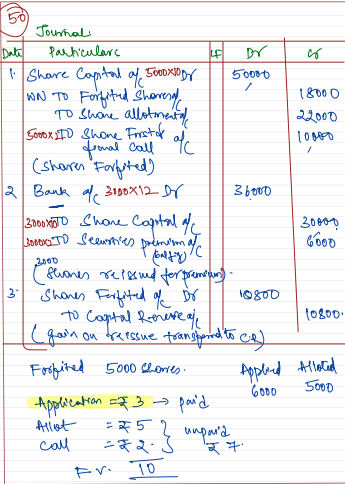 50
Journal
Date Particulars LF Dr Cr
1. Share Capital a/c 5000x10 Dr 50000
WN TO Forfited Shares a/c 18000
TO Share allotment a/c 22000
5000x2 TO Share First & a/c 10000
final Call
(Shares Forfited)
2 Bank a/c 3000x12 Dr 36000
3000x10 TO Share Capital a/c 30000
3000x2 TO Securities premium a/c 6000
3000 (bal fig)
(Shares reissued for premium).
3. Shares Forfited a/c Dr 10800
TO Capital Reserve a/c 10800
(gain on reissue transferred to C.R)
Forfited 5000 shares. Applied Alloted
6000 5000
Application = ₹ 3 → paid
Allot = ₹ 5 } unpaid
Call = ₹ 2. ₹ 7.
F.V. 10